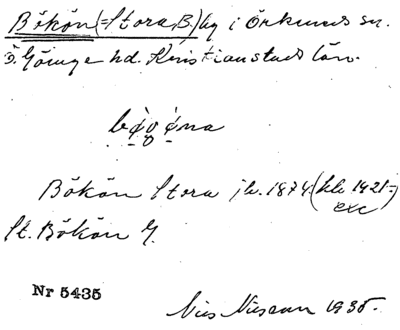 Bökön (= Stora B.) by i Örkeneds sn.
Ö. Göinge hd. Kristianstads län.
Bökön Stora jb. 1874 (hk 1921-
exc
St. Bökön G.
Nr 5435
Nils Nilsson 1935.